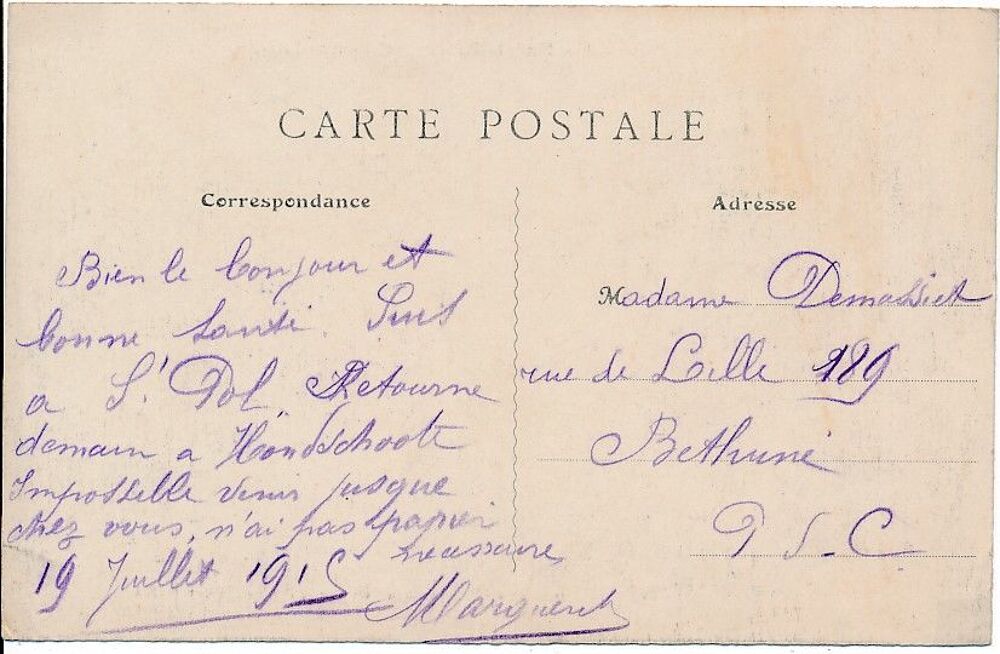 CARTE POSTALE
Correspondance
Bien le bonjour et
bonne santé. Suis
a St Pol. Retourne
demain a Hondschoote
Impossible venir jusque
chez vous, n'ai pas papier
necessaire
19 Juillet 1915
Adresse
Madame
rue de Lille 189
Bethune
P. d. C